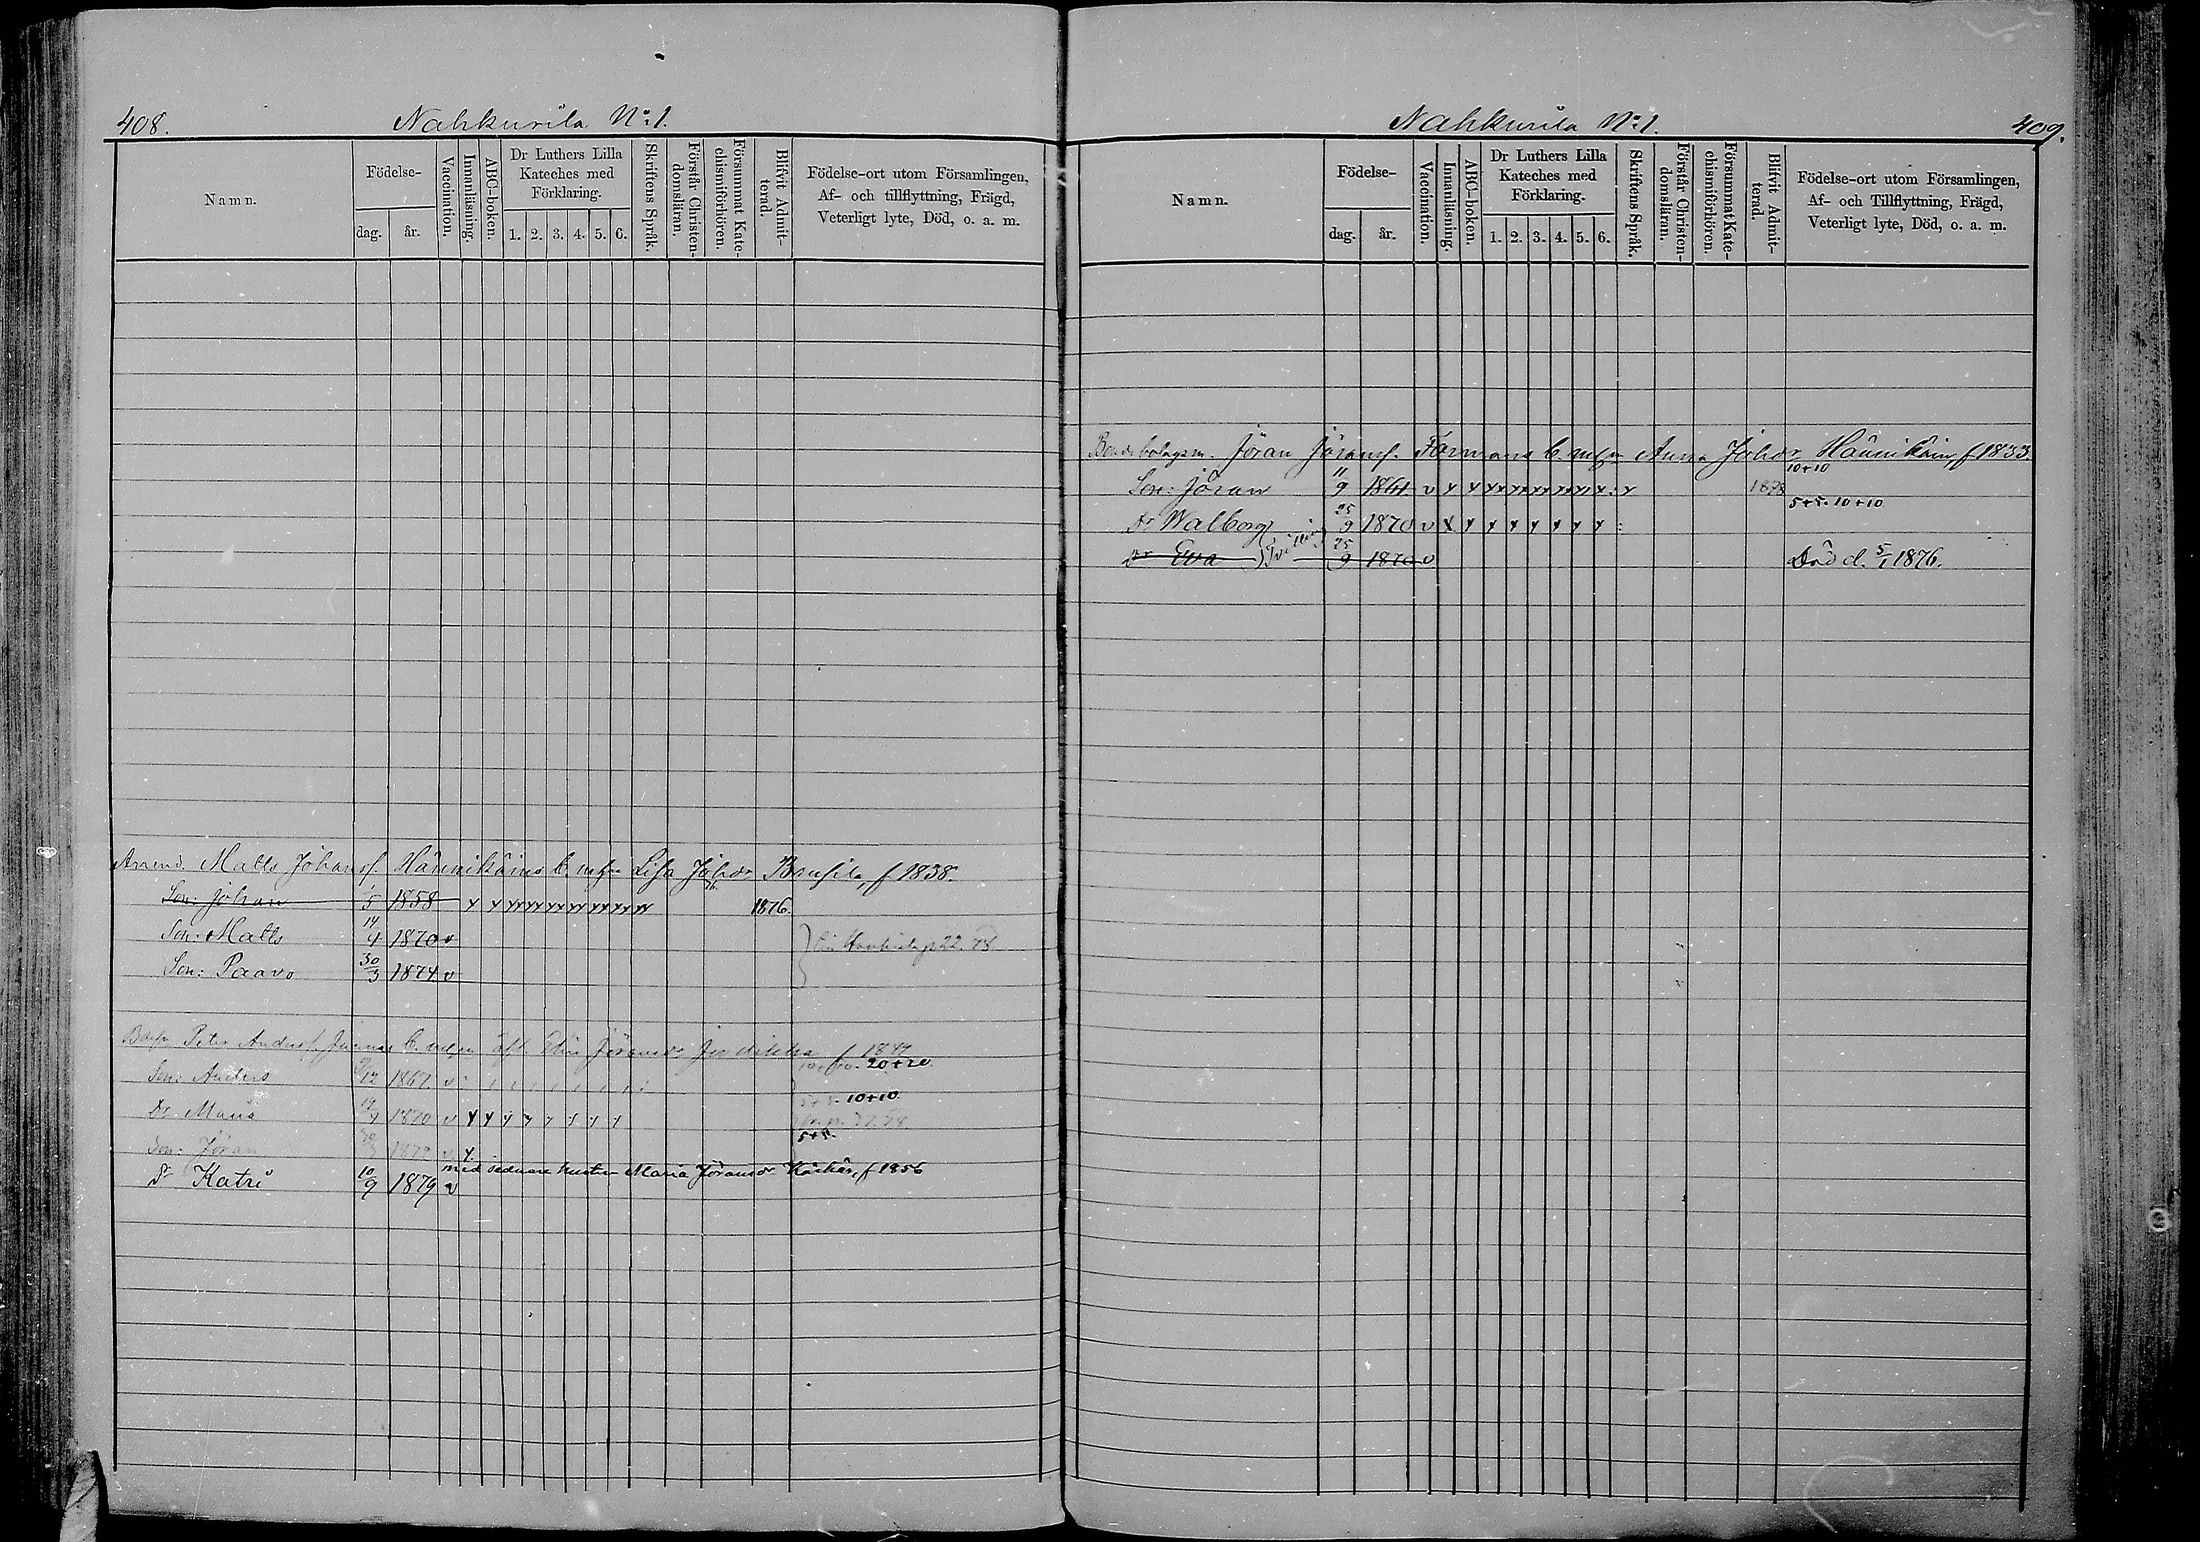 408. Nahkurila No 1.
Namn.
Födelse-
dag. år.
Vaccination.
Innanläsning.
ABC-boken.
Dr Luthers Lilla Kateches med Förklaring.
1. 2. 3. 4. 5. 6.
Skriftens Språk.
Förstår Christendomsläran.
Försummat Katechismiförhören.
Blifvit Admitterad.
Födelse-ort utom Församlingen,
Af- och tillflyttning, Frägd,
Veterligt lyte, Död, o. a. m.
Arrend. Matts Johansf. Hännikäins b. m. fru Lisa Johdr f 1838.
Son: Johan 5 1858 x x xx xx xx xx xx xx xx 1876.
Son: Matts 14/4 1870 v
Son: Paavo 30/3 1874 v
Peter Andersf. b. m. Jöransdr f 1847
Son: Anders /12 1867 v 20+20.
Dr Maria 1870 v x x x x x x x x 5+5. 10+10
Son: Jöran x. 5+5.
med sednare hustru Maria Jöransdr f 1856
Dr Katri 10/9 1879 v
Nahkurila No 1. 409.
Namn.
Födelse-
dag. år.
Vaccination.
Innanläsning.
ABC-boken.
Dr Luthers Lilla Kateches med Förklaring.
1. 2. 3. 4. 5. 6.
Skriftens Språk.
Förstår Christendomsläran.
Försummat Katechismiförhören.
Blifvit Admitterad.
Födelse-ort utom Församlingen,
Af- och Tillflyttning, Frägd,
Veterligt lyte, Död, o. a. m.
Bonde bolagsm. Jöran Jöransf. b. m. fru Anna Johdr Hännikäin, f 1833.
Son: Jöran 11/9 1861 v x x xx xx xx xx xx x x 1878 10+10
Dr Walborg 25/9 1870 v x x x x x x x x 5+5. 10+10
Dr Eva Tvilling 25/9 1870 v Död d. 5/1 1876.